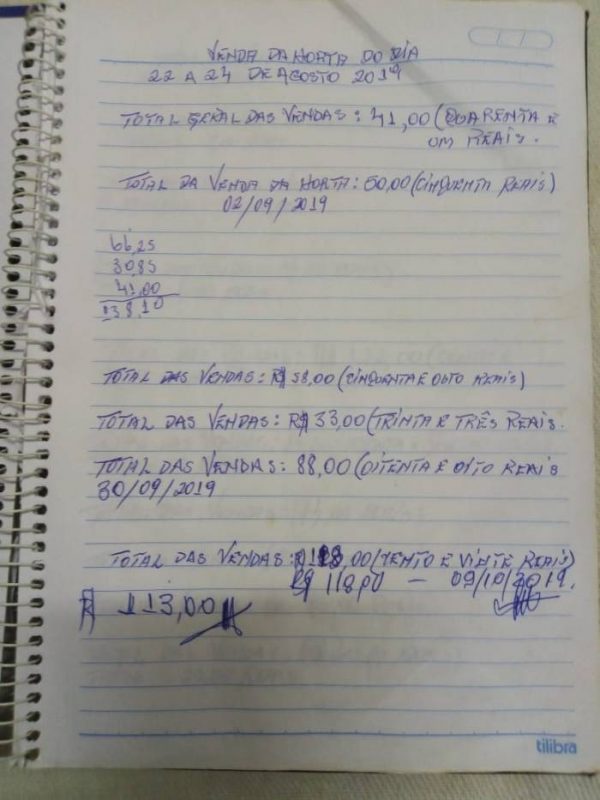 VENDA DA HORTA DO DIA
22 A 24 DE AGOSTO 2019
TOTAL GERAL DAS VENDAS: 41,00 (QUARENTA E
UM REAIS.
TOTAL DA VENDA DA HORTA: 50,00 (CINQUENTA REAIS)
02/09/2019
66,25
30,85
41,00
138,10
TOTAL DAS VENDAS: R$ 58,00 (CINQUENTA E OITO REAIS)
TOTAL DAS VENDAS: R$ 33,00 (TRINTA E TRÊS REAIS.
TOTAL DAS VENDAS: 88,00 (OITENTA E OITO REAIS
30/09/2019
TOTAL DAS VENDAS: R$ 118,00 (CENTO E VINTE REAIS)
R$ 118,00 — 09/10/2019.
R$ 113,00
tilibra